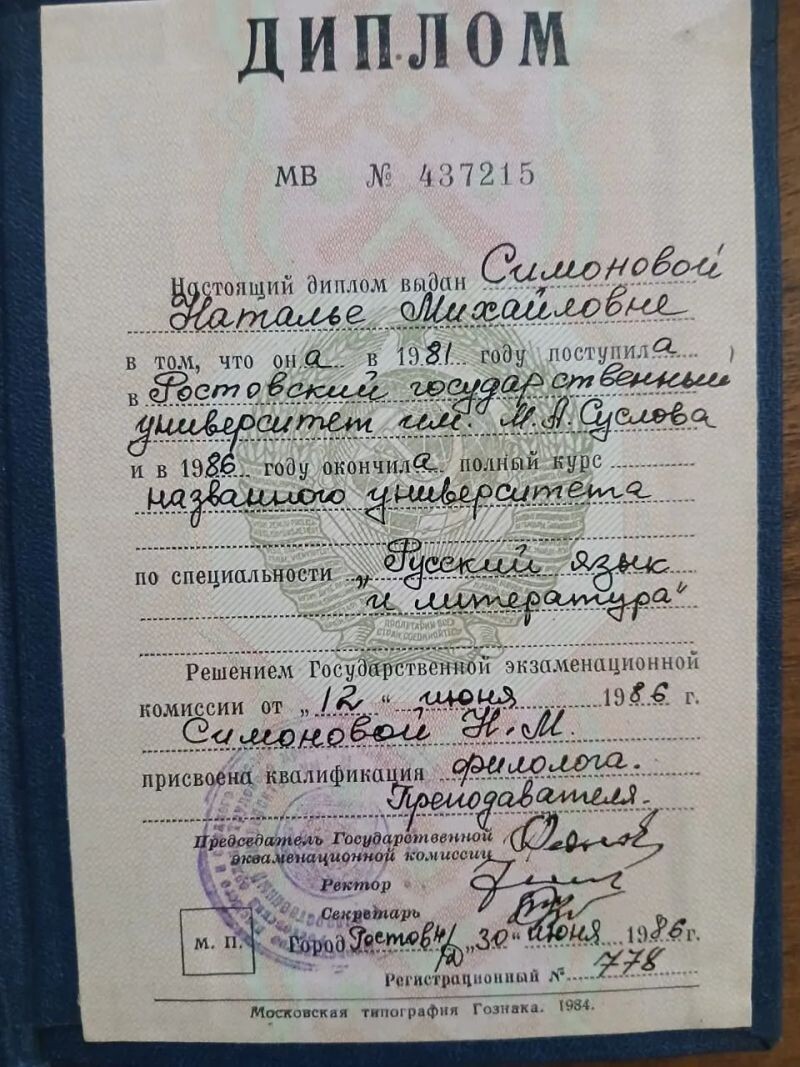 ДИПЛОМ
МВ № 437215
Настоящий диплом выдан Симоновой
Наталье Михайловне
в том, что она в 1981 году поступила
в Ростовский государственный
университет им. М.А. Суслова
и в 1986 году окончила полный курс
названного университета
по специальности „Русский язык
и литература"
ПРОЛЕТАРИИ ВСЕХ
СТРАН, СОЕДИНЯЙТЕСЬ!
Решением Государственной экзаменационной
комиссии от „12" июня 1986 г.
Симоновой Н.М.
присвоена квалификация филолога.
Преподавателя.
Председатель Государственной
экзаменационной комиссии
Ректор
Секретарь
М. П.
Город Ростов н/Д „30" июня 1986 г.
Регистрационный № 778
Московская типография Гознака. 1984.